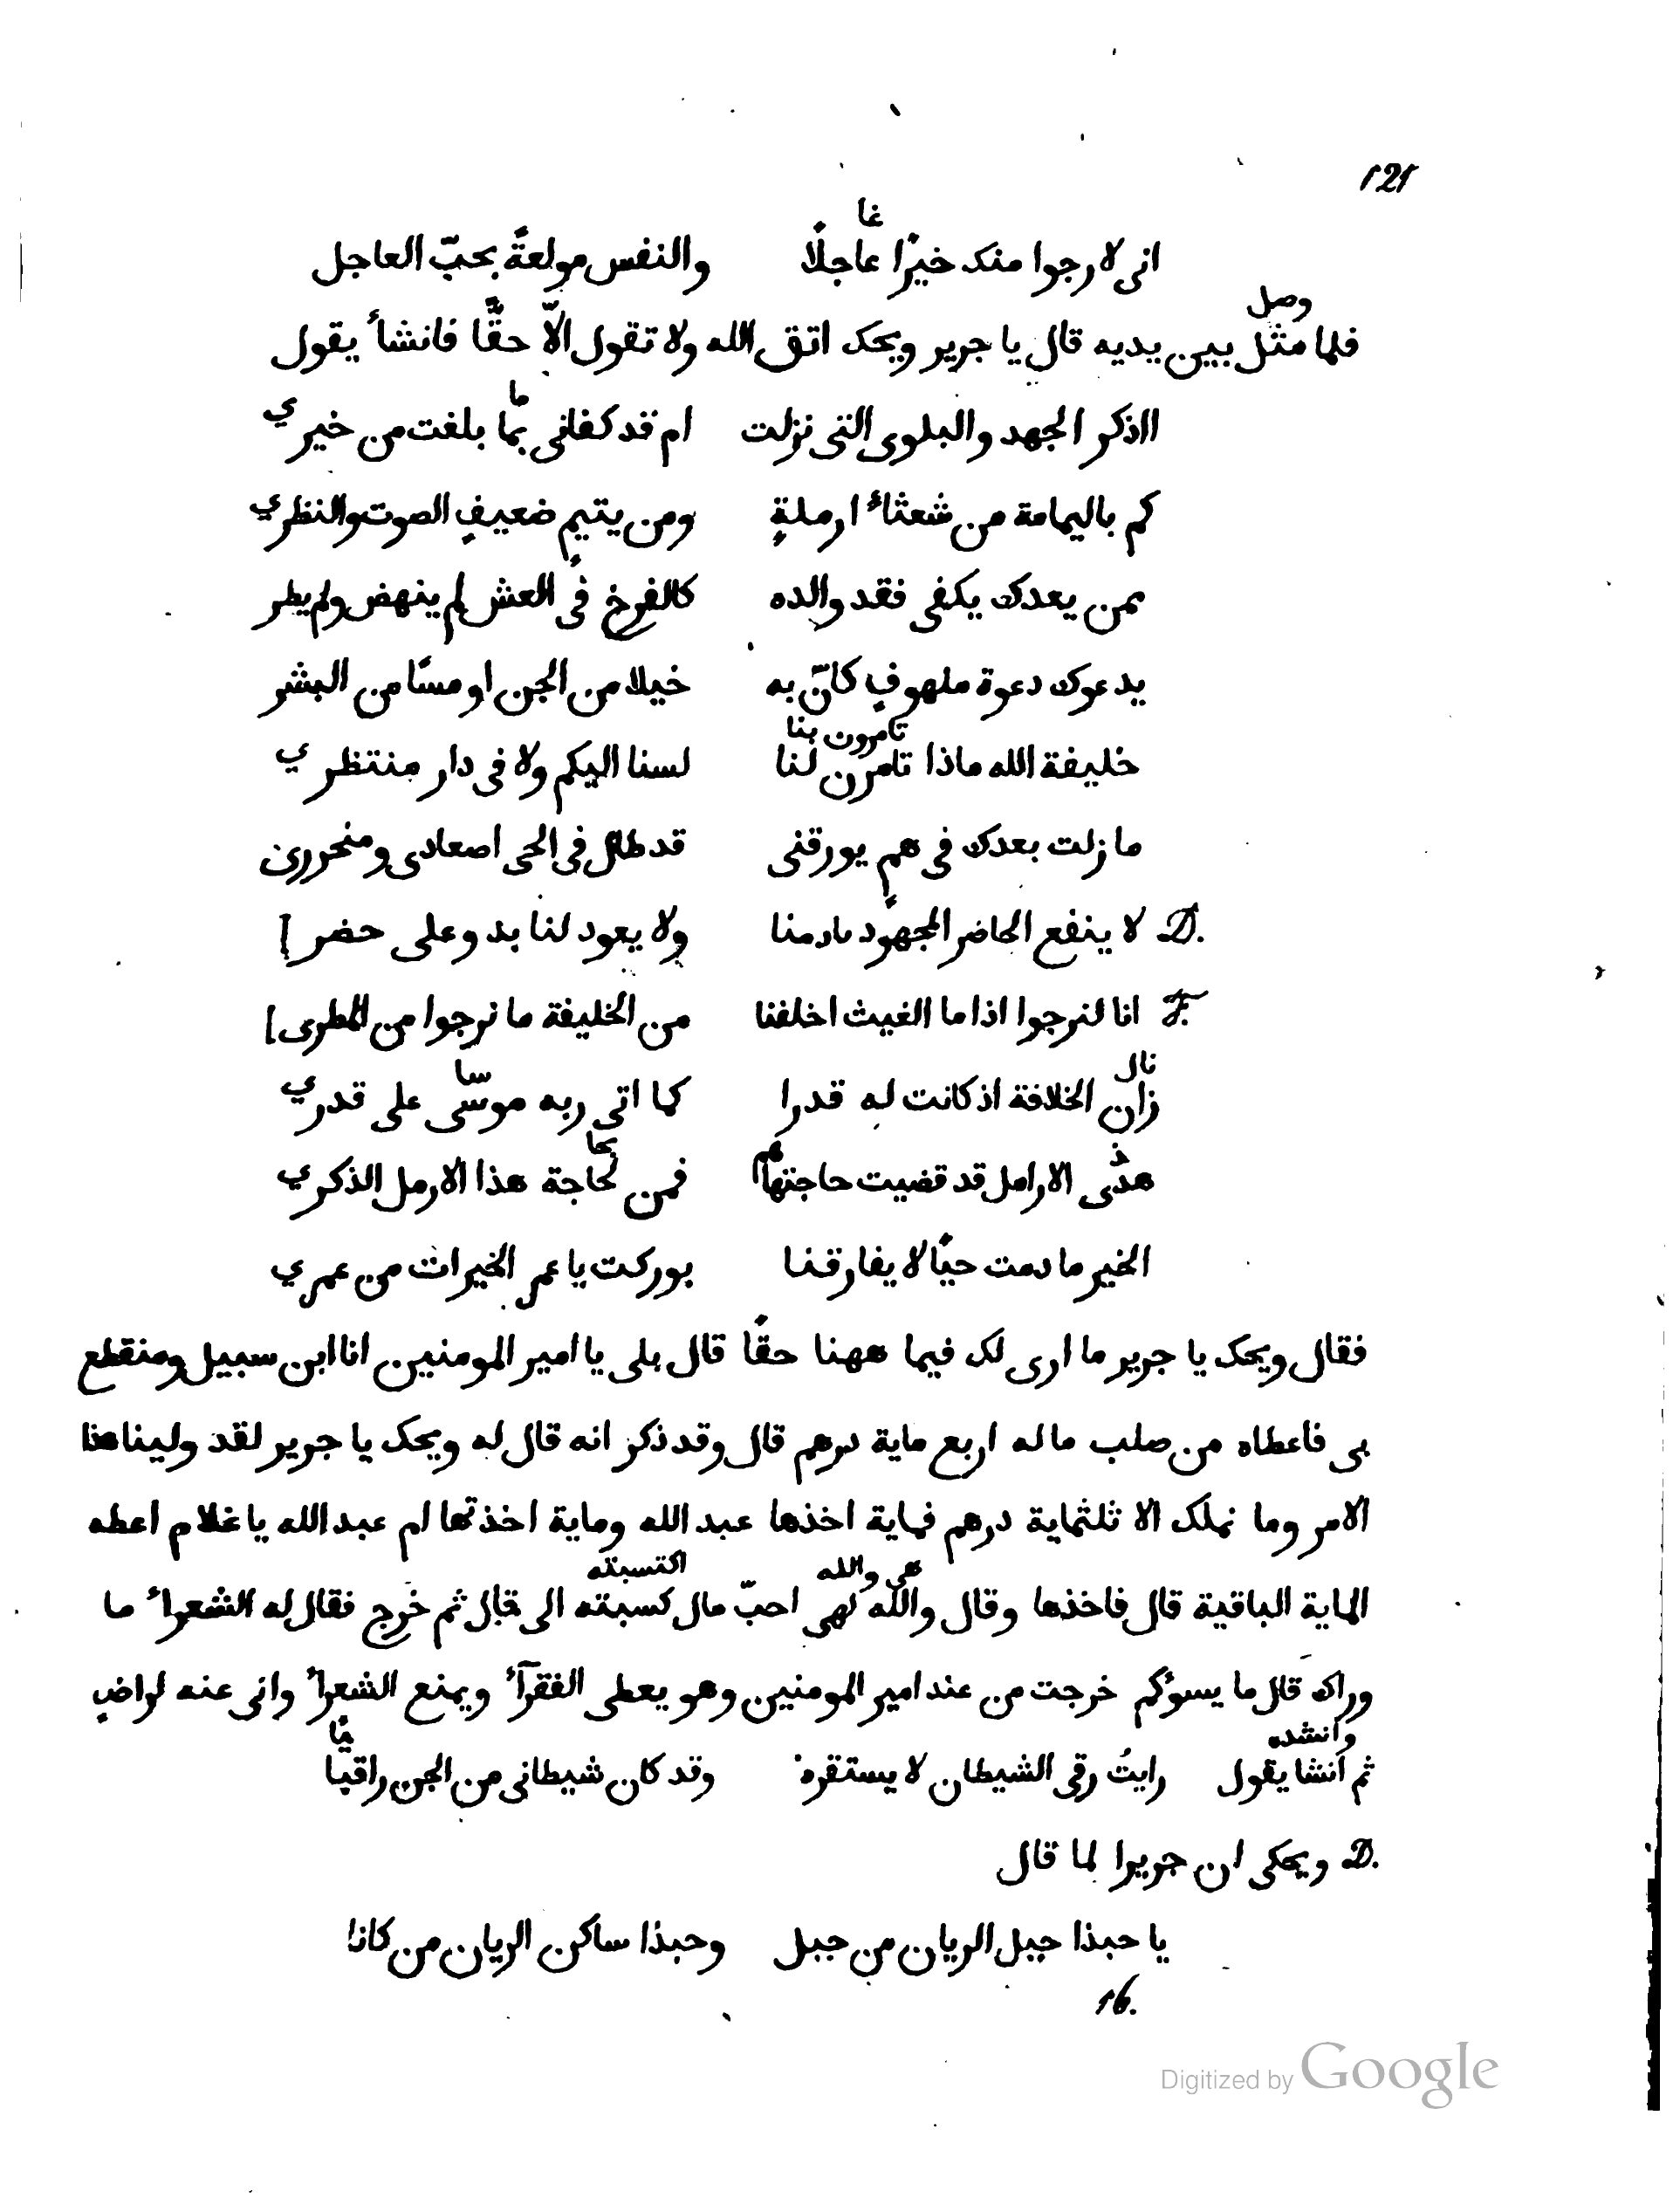 121
غا
انى لارجوا منك خيرًا عاجلًا والنفس مولعةً بحبّ العاجل
وصل
فلما مثل بين يديه قال يا جرير ويحك اتق الله ولا تقول الّا حقًّا فانشأ يقول
ما
ااذكر الجهد والبلوى التى نزلت ام قد كفانى بما بلغت من خيري
كم باليمامة من شعثاء ارملةٍ ومن يتيمٍ ضعيفِ الصوت والنظري
ممن يعدك يكفى فقد والده كالفرخ فى العش لم ينهض ولم يطر
يدعوك دعوة ملهوفٍ كانّ به خيلا من الجن او مسًا من البشر
تامرون بنا
خليفة الله ماذا تامرن لنا لسنا اليكم ولا فى دار منتظري
ما زلت بعدك فى همٍ يورقنى قد طال فى الحى اصعادى ومنحدرى
D. لا ينفع الحاضر المجهود بادمنا ولا يعود لنا بد وعلى حضر]
F. انا لنرجوا اذا ما الغيث اخلفنا من الخليفة ما نرجوا من المطرى]
نال
زان الخلافة اذ كانت له قدرا كما اتى ربه موسى على قدري
سا
هذى الارامل قد قضيت حاجتها فمن لحاجة هذا الارمل الذكري
هم بحا
الخير ما دمت حيًا لا يفارقنا بوركت يا عمر الخيرات من عمري
فقال ويحك يا جرير ما ارى لك فيما ههنا حقًا قال بلى يا امير المومنين انا ابن سبيل ومنقطع
بى فاعطاه من صلب ماله اربع ماية درهم قال وقد ذكر انه قال له ويحك يا جرير لقد ولينا هذا
الامر وما نملك الا ثلثماية درهم فماية اخذها عبد الله وماية اخذتها ام عبد الله يا غلام اعطه
هى والله اكتسبته
الماية الباقية قال فاخذها وقال والله لهى احبّ مال كسبته الى قال ثم خرج فقال له الشعراء ما
وراك قال ما يسوكم خرجت من عند امير المومنين وهو يعطى الفقرآء ويمنع الشعراء وانى عنه لراضٍ
وانشده يًا
ثم انشا يقول رايتُ رقى الشيطان لا يستفزه وقد كان شيطانى من الجن راقيا
D. ويحكى ان جريرا لما قال
يا حبذا جبل الريان من جبل وحبذا ساكن الريان من كانا
16.
Digitized by Google